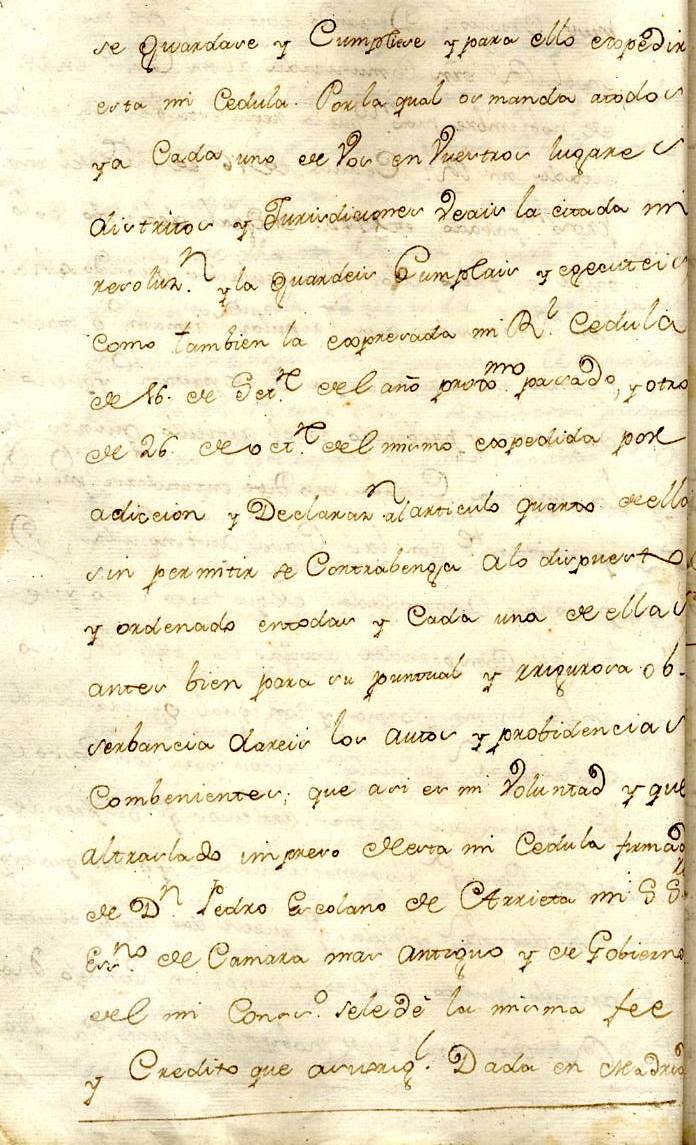 se guardase y Cumpliese y para ello expedir
esta mi Cedula. Por la qual os manda atodos
ya Cada uno de Vos en Vuestros lugares
distritos y Jurisdiciones veais la citada mi
resoluz.n y la guardeis Cumplais y executeis
como tambien la expresada mi R.l Cedula
de 16. de Set.re del año proxo.mo pasado, y otro
de 26. de oct.re del mismo expedida por
adiccion y Declaraz.n al articulo quarto de ella
sin permitir se Contrabenga alo dispuesto
y ordenado entodas y Cada una de ellas
antes bien para su puntual y rrigurosa ob-
serbancia dareis los autos y probidencias
Combenientes; que asi es mi Voluntad y que
altraslado impreso desta mi Cedula firmado
de D.n Pedro Escolano de Arrieta mi
Es.no de Camara mas antiguo y de Gobierno
del mi Cons.o sele dé la misma fee
y Credito que asuorig.l. Dada en Madrid